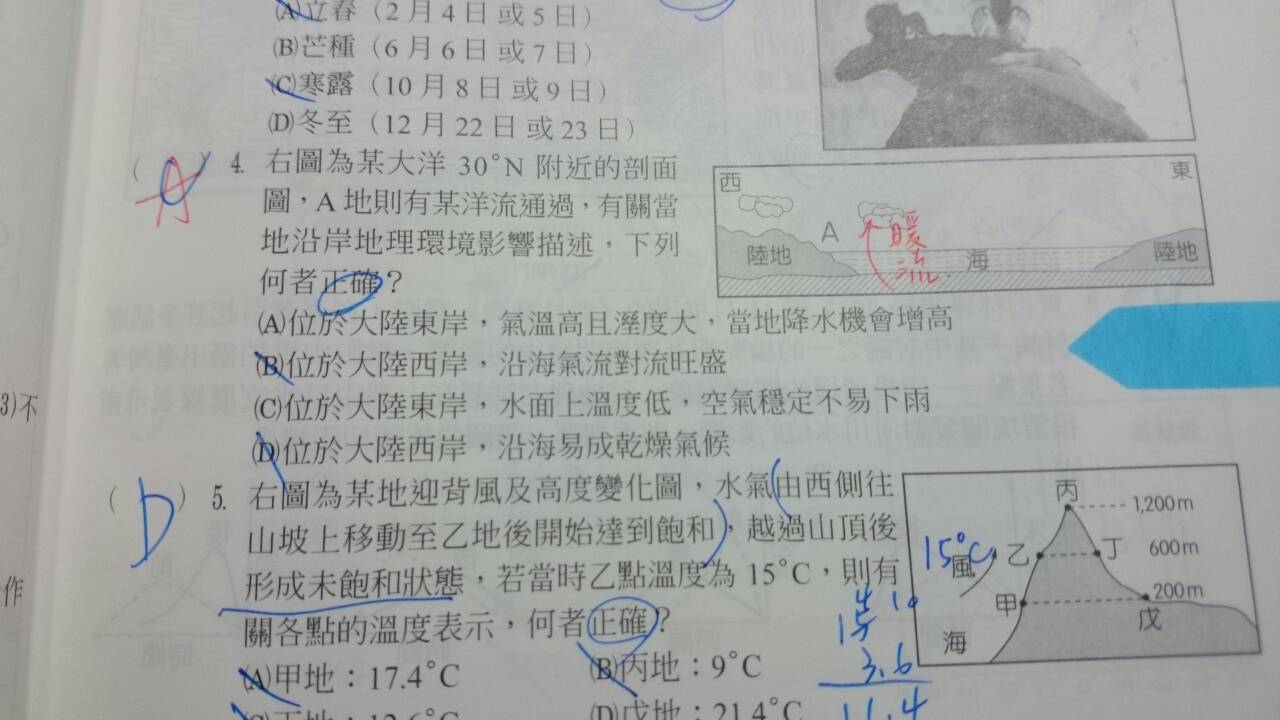 (A)立春(2月4日或5日)
(B)芒種(6月6日或7日)
(C)寒露(10月8日或9日)
(D)冬至(12月22日或23日)
( A ) 4. 右圖為某大洋 30°N 附近的剖面
圖，A 地則有某洋流通過，有關當
地沿岸地理環境影響描述，下列
何者正確？
西
東
A
暖
流
陸地
海
陸地
(A)位於大陸東岸，氣溫高且溼度大，當地降水機會增高
(B)位於大陸西岸，沿海氣流對流旺盛
(C)位於大陸東岸，水面上溫度低，空氣穩定不易下雨
(D)位於大陸西岸，沿海易成乾燥氣候
3)不
作
( D ) 5. 右圖為某地迎背風及高度變化圖，水氣由西側往
山坡上移動至乙地後開始達到飽和，越過山頂後
形成未飽和狀態，若當時乙點溫度為 15°C，則有
關各點的溫度表示，何者正確？
丙
1,200m
15°C
乙
丁
600m
風
甲
200m
戊
海
3.6
11.4
(A)甲地：17.4°C
(B)丙地：9°C
(D)戊地：21.4°C